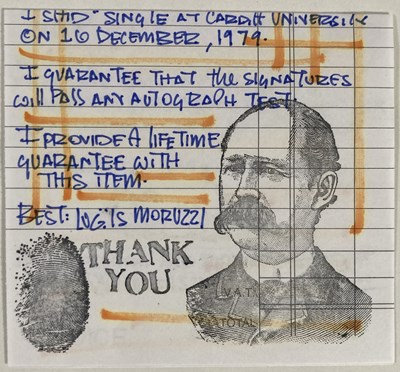 I SAID" SINGLE AT CARDIFF UNIVERSITY
ON 16 DECEMBER, 1979.
I GUARANTEE THAT the SIGNATURES
will PASS ANY AUTOGRAPH TEST.
I PROVIDE A LIFETIME
GUARANTEE WITH
THIS ITEM.
BEST: MORUZZI
THANK
YOU
V.A.T.
TOTAL